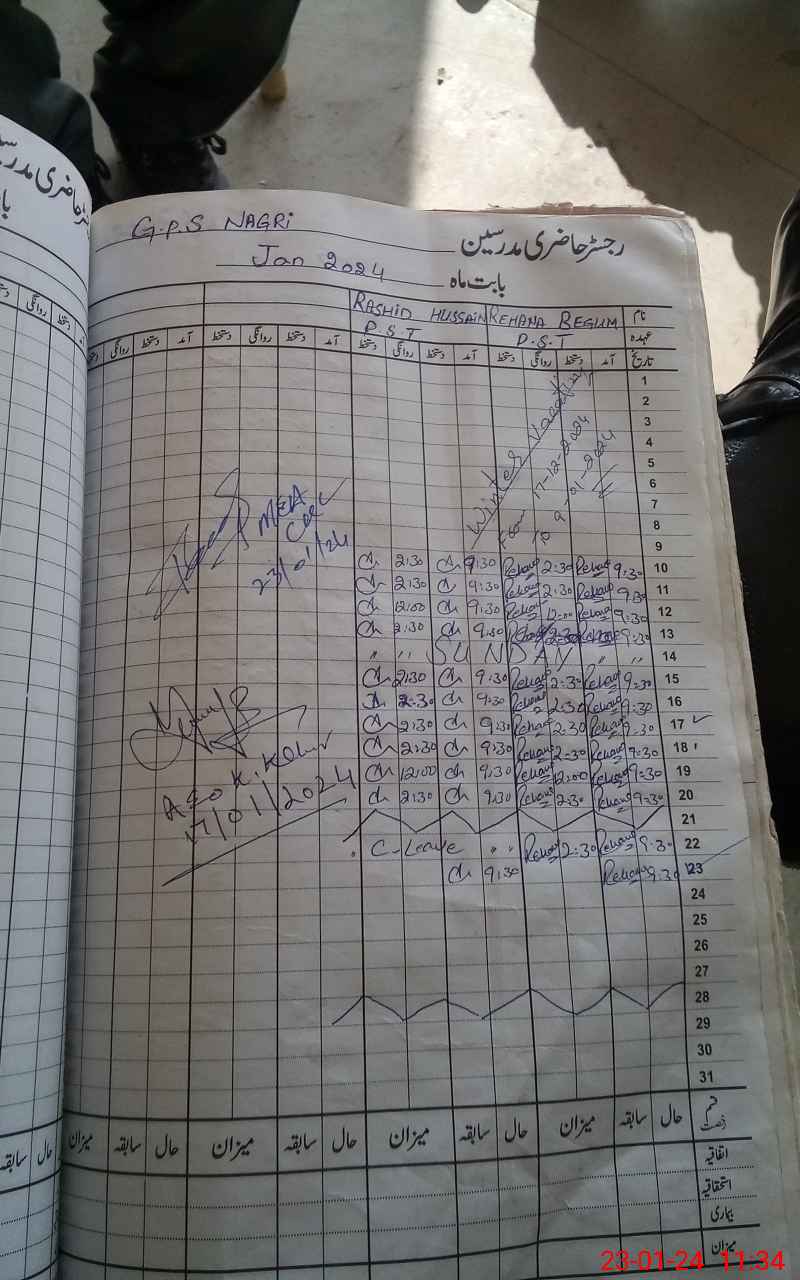 G.P.S NAGRi
رجسٹر حاضری مدرسین
Jan 2024 بابت ماہ
نام REHANA BEGUM RASHID HUSSAIN
عہدہ P.S.T P.S.T
تاریخ آمد دستخط روانگی دستخط آمد دستخط روانگی دستخط آمد دستخط روانگی دستخط
1
2
3
4
5
6
7
8
9
Winter Vacation
from 17-12-2024
To 9-01-2024
10 9:30 Rehana 2:30 Rehana 9:30 2:30
11 9:30 Rehana 2:30 Rehana 9:30 2:30
12 9:30 Rehana 12:00 Rehana 9:30 12:00
13 9:30 Rehana 2:30 Rehana 9:30 2:30
14 " " SUNDAY " "
15 9:30 Rehana 2:30 Rehana 9:30 2:30
16 9:30 Rehana 2:30 Rehana 9:30 2:30
17 9:30 Rehana 2:30 Rehana 9:30 2:30
18 9:30 Rehana 2:30 Rehana 9:30 2:30
19 9:30 Rehana 12:00 Rehana 9:30 12:00
20 9:30 Rehana 2:30 Rehana 9:30 2:30
21
22 9:30 Rehana 2:30 Rehana C-Leave " "
23 9:30 Rehana 9:30
24
25
26
27
28
29
30
31
MEA
23/01/24
17/01/2024
قسم رخصت حال سابقہ میزان حال سابقہ میزان حال سابقہ میزان حال سابقہ میزان
اتفاقیہ
استحقاقیہ
بیماری
میزان
رجسٹر حاضری مدرسین
روانگی دستخط
حال سابقہ
23-01-24 11:34